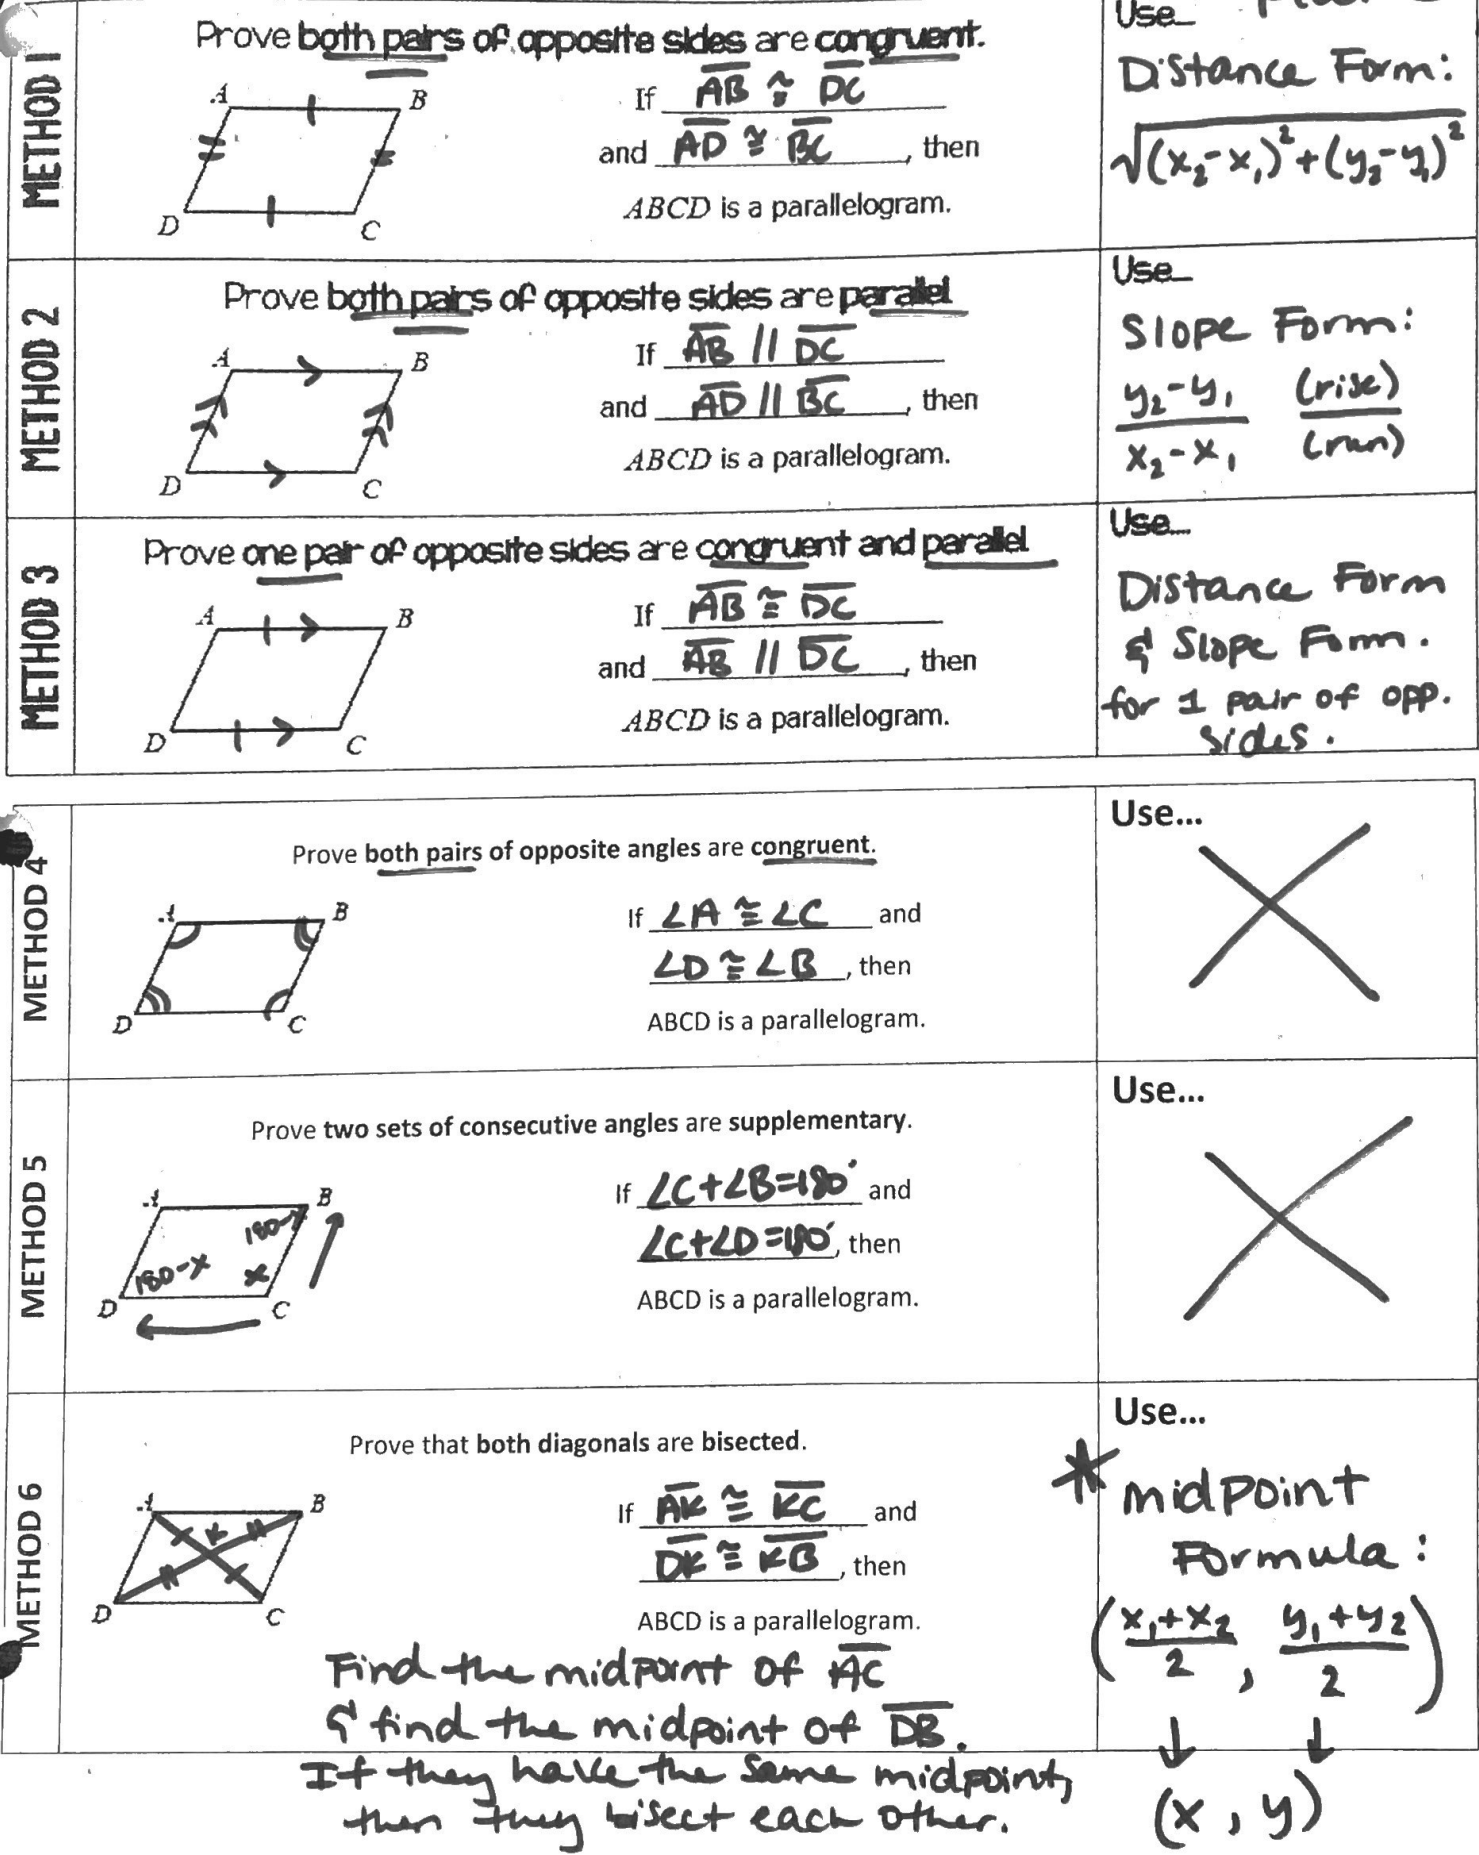 METHOD 1
Prove both pairs of opposite sides are congruent.
A
B
D
C
If AB ≅ DC
and AD ≅ BC, then
ABCD is a parallelogram.
Use
Distance Form:
√(x₂-x₁)²+(y₂-y₁)²
METHOD 2
Prove both pairs of opposite sides are parallel
A
B
D
C
If AB // DC
and AD // BC, then
ABCD is a parallelogram.
Use
Slope Form:
y₂-y₁ (rise)
x₂-x₁ (run)
METHOD 3
Prove one pair of opposite sides are congruent and parallel
A
B
D
C
If AB ≅ DC
and AB // DC, then
ABCD is a parallelogram.
Use...
Distance Form
& Slope Form.
for 1 pair of opp.
sides.
METHOD 4
Prove both pairs of opposite angles are congruent.
A
B
D
C
If ∠A ≅ ∠C and
∠D ≅ ∠B, then
ABCD is a parallelogram.
Use...
METHOD 5
Prove two sets of consecutive angles are supplementary.
A
B
180-x
180-x
x
D
C
If ∠C+∠B=180° and
∠C+∠D=180°, then
ABCD is a parallelogram.
Use...
METHOD 6
Prove that both diagonals are bisected.
A
B
K
D
C
If AK ≅ KC and
DK ≅ KB, then
ABCD is a parallelogram.
Find the midpoint of AC
& find the midpoint of DB.
If they have the same midpoint,
then they bisect each other.
Use...
* midpoint
Formula:
(x₁+x₂/2, y₁+y₂/2)
(x, y)